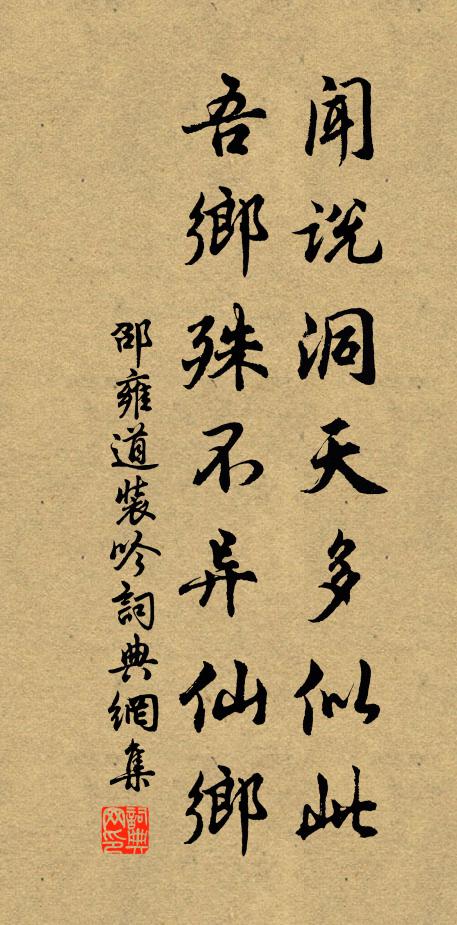 闻说洞天多似此
吾鄉殊不异仙鄉
邵雍道裝吟詞典網集
詞典网印